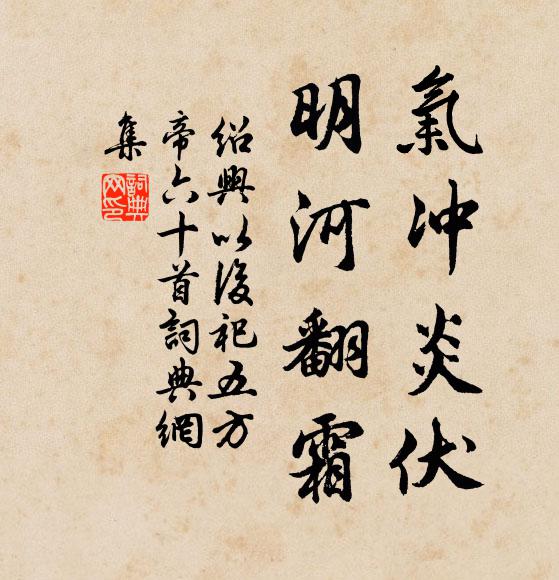 氣冲炎伏
明河翻霜
紹興以後祀五方
帝六十首詞典網
集
詞典
网印